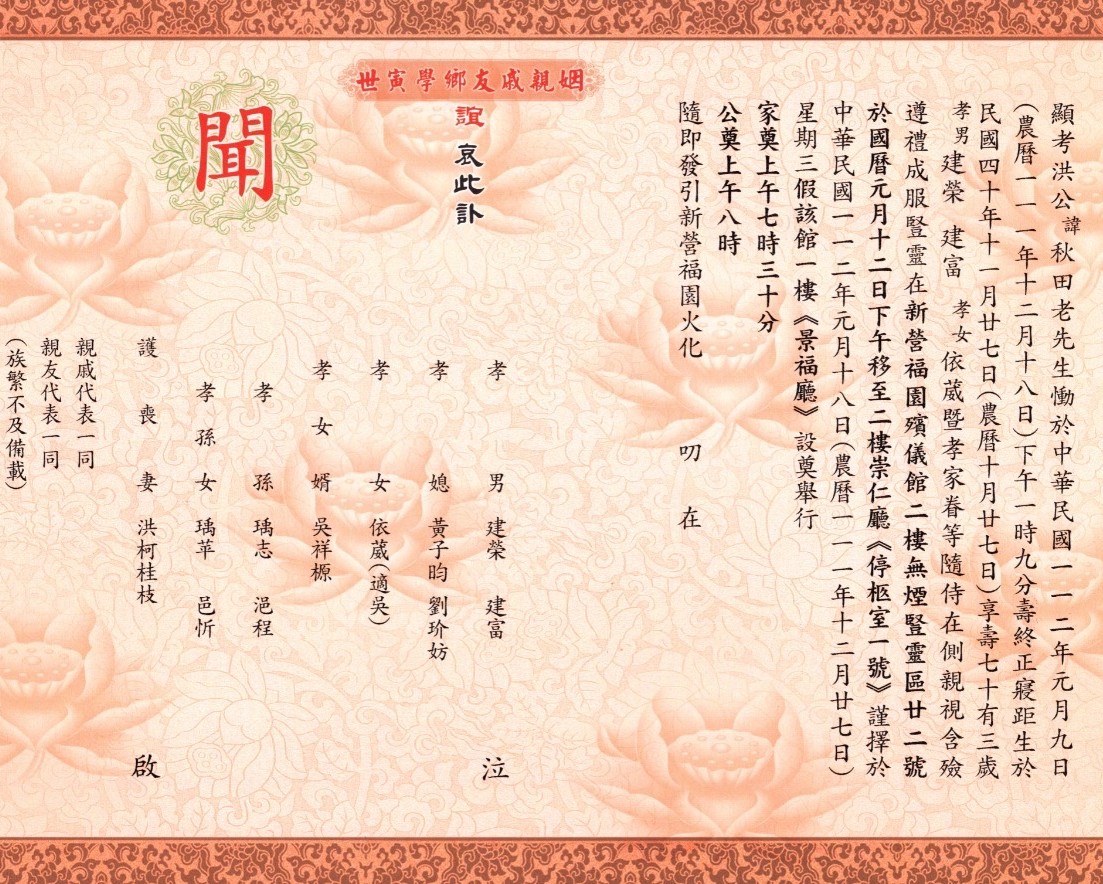 顯考洪公諱秋田老先生慟於中華民國一一二年元月九日
(農曆一一一年十二月十八日)下午一時九分壽終正寢距生於
民國四十年十一月廿七日(農曆十月廿七日)享壽七十有三歲
孝男建榮 建富 孝女依葳暨孝家眷等隨侍在側親視含殮
遵禮成服豎靈在新營福園殯儀館二樓無煙豎靈區廿二號
於國曆元月十二日下午移至二樓崇仁廳《停柩室一號》謹擇於
中華民國一一二年元月十八日(農曆一一一年十二月廿七日)
星期三假該館一樓《景福廳》設奠舉行
家奠上午七時三十分
公奠上午八時
隨即發引新營福園火化 叨在
姻親戚友鄉學寅世
誼 哀此訃
聞
孝男 建榮 建富
孝媳 黃子昀 劉玠妨
孝女 依葳(適吳)
孝女婿 吳祥榞
孝孫 瑀志 浥程
孝孫女 瑀苹 邑忻
泣
護喪妻 洪柯桂枝
啟
親戚代表一同
親友代表一同
(族繁不及備載)